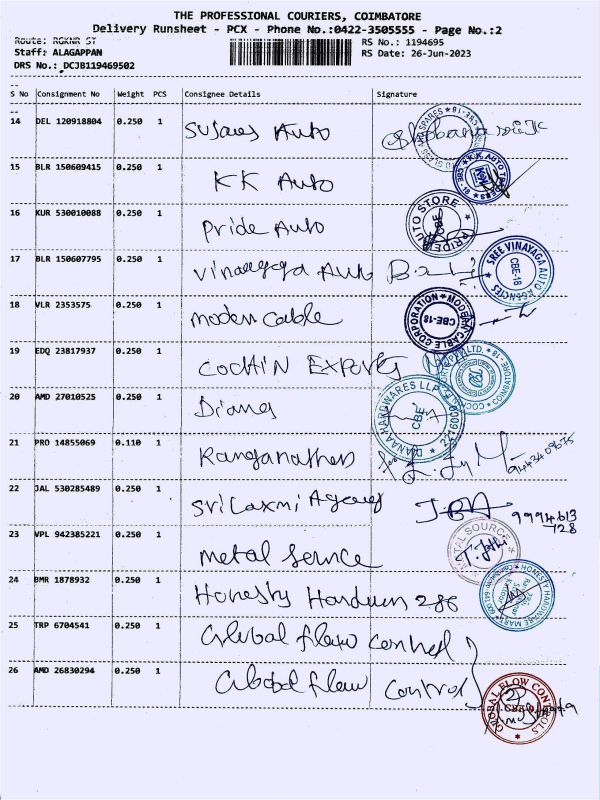 THE PROFESSIONAL COURIERS, COIMBATORE
Delivery Runsheet - PCX - Phone No.:0422-3505555 - Page No.:2
Route: RGKNR ST
RS No.: 1194695
Staff: ALAGAPPAN
RS Date: 26-Jun-2023
DRS No.: DCJB119469502
S No Consignment No Weight PCS Consignee Details Signature
14 DEL 120918804 0.250 1 Auto
15 BLR 150609415 0.250 1 KK Auto
K.K. AUTO
16 KUR 530010088 0.250 1 Pride Auto
PRIDE AUTO STORE CBE
17 BLR 150607795 0.250 1 Auto
SREE VINAYAGA AUTO AGENCIES CBE-18
18 VLR 2353575 0.250 1 modern Cable
MODERN CABLE CORPORATION CBE-18
19 EDQ 23817937 0.250 1 COCHIN Exports
COIMBATORE - 18
20 AMD 27010525 0.250 1
HARDWARES LLP CBE
21 PRO 14855069 0.110 1
22 JAL 530285489 0.250 1 Sri Laxmi Agency
9994613
728
23 VPL 942385221 0.250 1 metal
METAL SOURCE
24 BMR 1878932 0.250 1 Honesty 286
HONESTY HARDWARE MART
25 TRP 6704541 0.250 1 Global flow Control
26 AMD 26830294 0.250 1 Global flow Control
GLOBAL FLOW CONTROLS